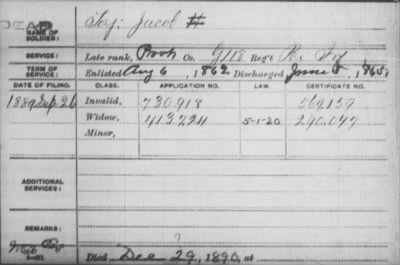 DEAD
NAME OF SOLDIER: Foy: Jacob H
SERVICE: Late rank, Co. G 118 Reg't Inf
TERM OF SERVICE: Enlisted Aug 6, 1862 Discharged June 8, 1865
DATE OF FILING. CLASS. APPLICATION NO. LAW. CERTIFICATE NO.
1889 Sep. 26 Invalid, 730.918 569.159
Widow, 413224 5-1-20 290.047
Minor,
ADDITIONAL SERVICES:
REMARKS:
Died Dec 29, 1890, at